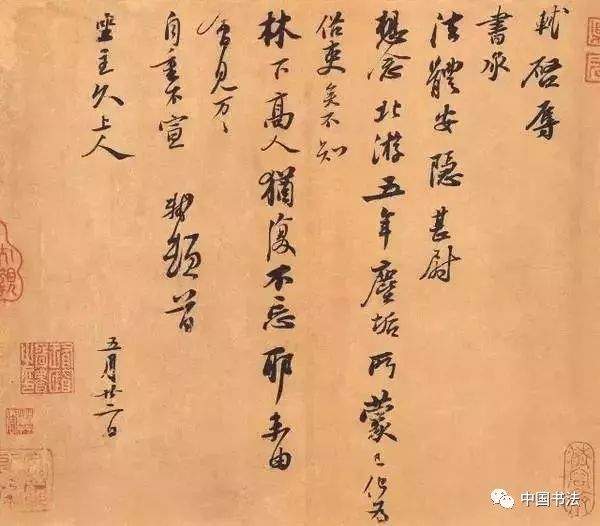 軾啓辱
書承
法體安隱甚尉
想念北游五年塵垢所蒙已化為
俗吏矣不知
林下高人猶復不忘耶未由
會見万〻
自重不宣 軾頓首
坐主久上人
五月廿二日
中国书法